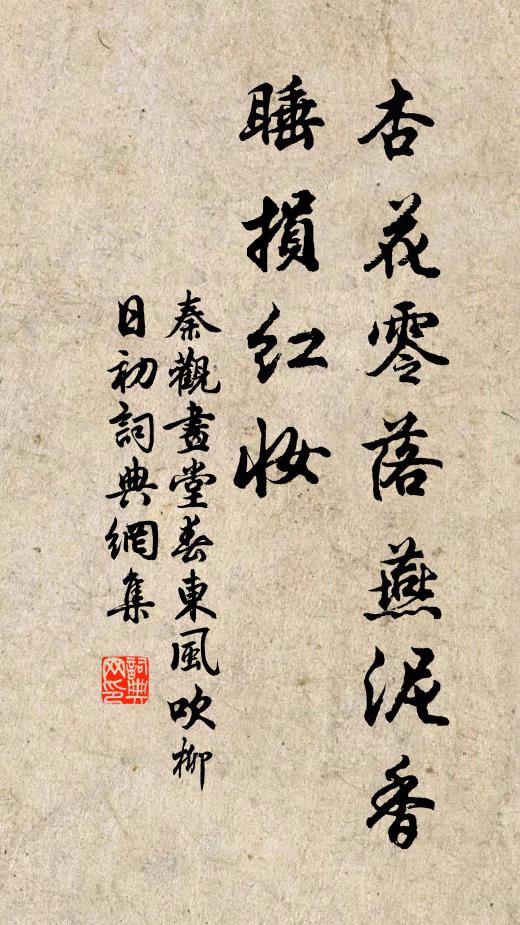 杏花零落燕泥香
睡損红妝
秦觀畫堂春東風吹柳
日初詞典網集
詞典
网印